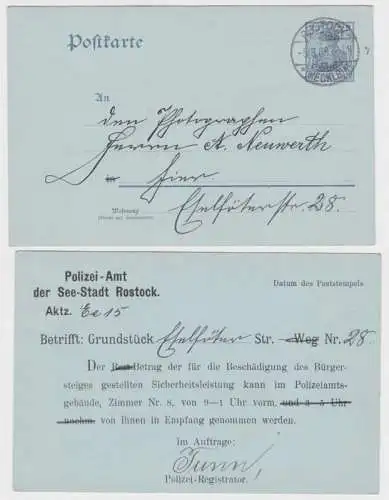 Postkarte
ROSTOCK
(MECKLB)
An
den Photographen
Herrn A. Neuwerth
in Hier
Eselföterstr. 28.
Wohnung
Polizei-Amt
der See-Stadt Rostock.
Aktz. Ee 15
Datum des Poststempels
Betrifft: Grundstück Eselföter Str. Weg Nr. 28.
Der Rest-Betrag der für die Beschädigung des Bürger-
steiges gestellten Sicherheitsleistung kann im Polizeiamts-
gebäude, Zimmer Nr. 8, von 9—1 Uhr vorm. und 3—5 Uhr
nachm. von Ihnen in Empfang genommen werden.
Im Auftrage:
Polizei-Registrator.